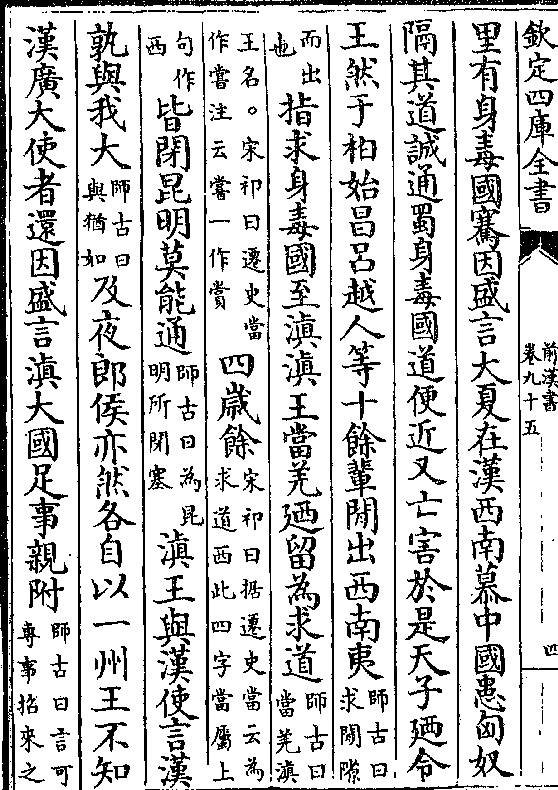 欽定四庫全書
前漢書
卷九十五
四
里有身毒國騫因盛言大夏在漢西南慕中國患匈奴
隔其道誠通蜀身毒國道便近又亡害於是天子廼令
王然于柏始昌呂越人等十餘輩閒出西南夷師古曰
求閒隙
而出
也指求身毒國至滇滇王當羌廼留為求道師古曰
當羌滇
王名。宋祁曰遷史當
作嘗注云嘗一作賞四歲餘宋祁曰据遷史當云為
求道西此四字當屬上
句作
西皆閉昆明莫能通師古曰為昆
明所閉塞滇王與漢使言漢
孰與我大師古曰
與猶如及夜郎侯亦然各自以一州王不知
漢廣大使者還因盛言滇大國足事親附師古曰言可
專事招來之